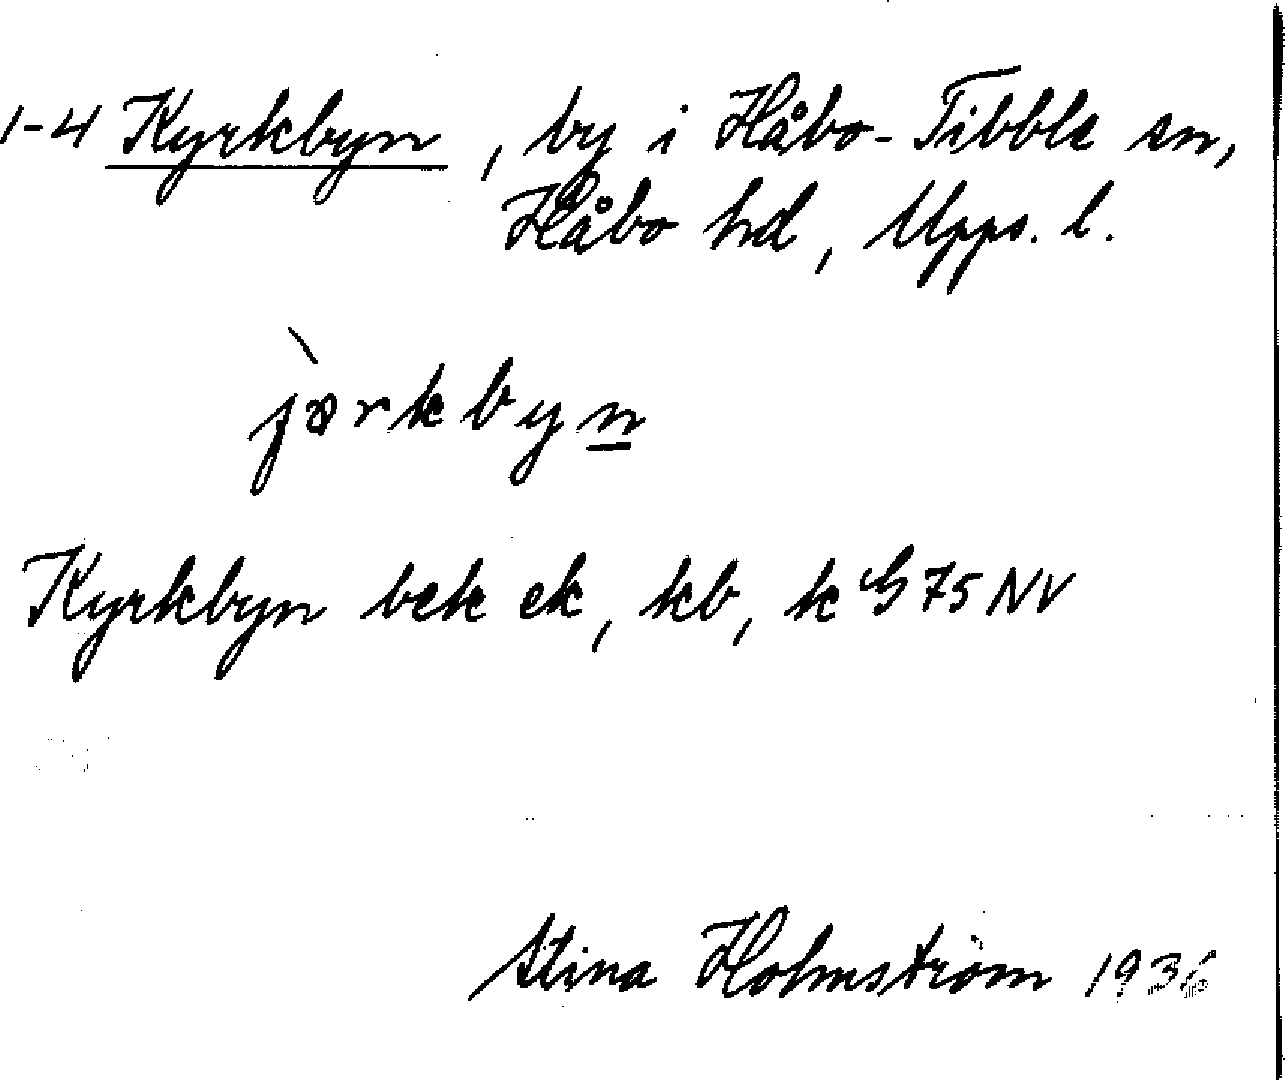 1-4 Kyrkbyn, by i Håbo-Tibble sn,
Håbo hd, Upps. l.
j&#x300;ørkbyn
Kyrkbyn bek ek, kb, k G 75 NV
Stina Holmström 1936